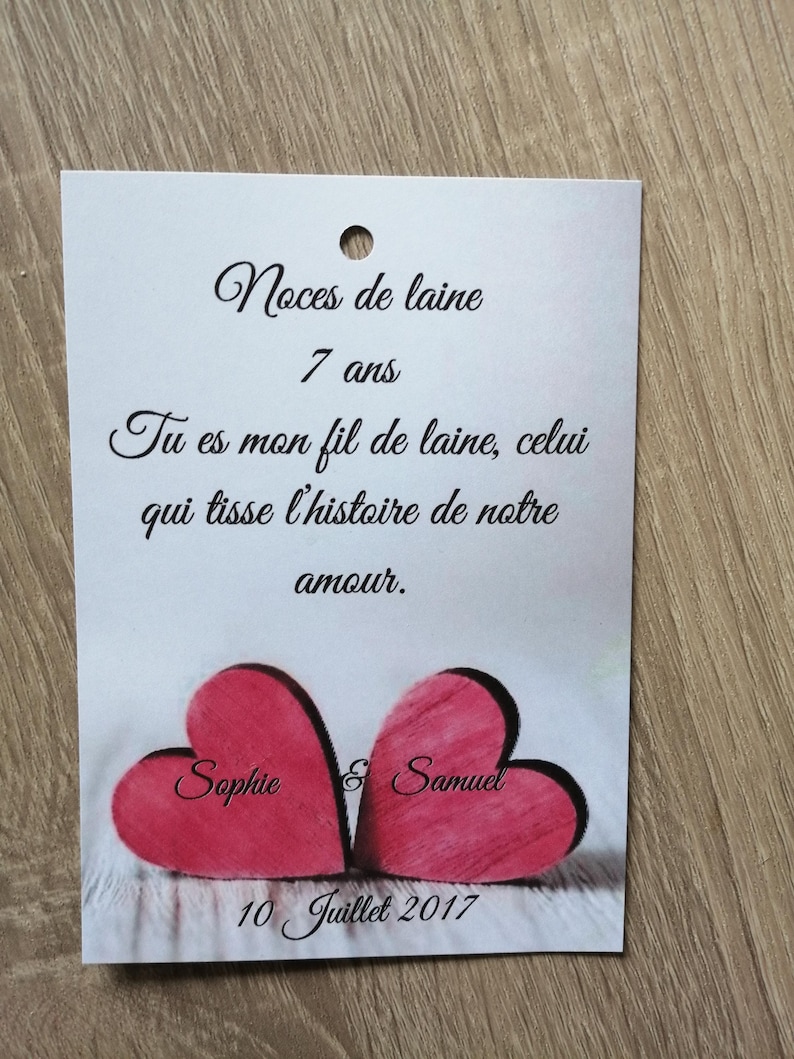 Noces de laine
7 ans
Tu es mon fil de laine, celui
qui tisse l'histoire de notre
amour.
Sophie & Samuel
10 Juillet 2017